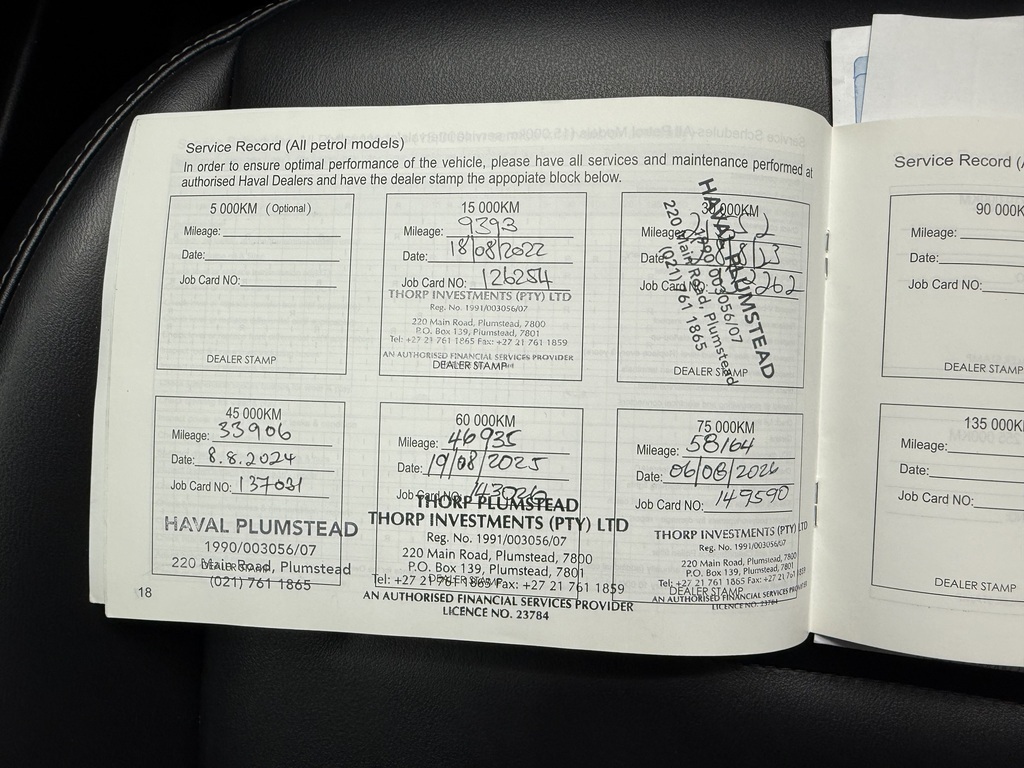 Service Record (All petrol models)
In order to ensure optimal performance of the vehicle, please have all services and maintenance performed at
authorised Haval Dealers and have the dealer stamp the appopiate block below.
5 000KM (Optional)
Mileage:
Date:
Job Card NO:
DEALER STAMP
15 000KM
Mileage: 9393
Date: 18/08/2022
Job Card NO: 126254
THORP INVESTMENTS (PTY) LTD
Reg. No. 1991/003056/07
220 Main Road, Plumstead, 7800
P.O. Box 139, Plumstead, 7801
Tel: +27 21 761 1865 Fax: +27 21 761 1859
AN AUTHORISED FINANCIAL SERVICES PROVIDER
DEALER STAMP
30 000KM
Mileage:
Date:
Job Card NO:
HAVAL PLUMSTEAD
1990/003056/07
220 Main Road, Plumstead
(021) 761 1865
DEALER STAMP
45 000KM
Mileage: 33906
Date: 8.8.2024
Job Card NO: 137031
HAVAL PLUMSTEAD
1990/003056/07
220 Main Road, Plumstead
DEALER STAMP
(021) 761 1865
60 000KM
Mileage: 46935
Date: 19/08/2025
Job Card NO:
THORP PLUMSTEAD
THORP INVESTMENTS (PTY) LTD
Reg. No. 1991/003056/07
220 Main Road, Plumstead, 7800
P.O. Box 139, Plumstead, 7801
Tel: +27 21 761 1865 Fax: +27 21 761 1859
DEALER STAMP
AN AUTHORISED FINANCIAL SERVICES PROVIDER
LICENCE NO. 23784
75 000KM
Mileage: 58164
Date: 06/08/2026
Job Card NO: 149590
THORP INVESTMENTS (PTY) LTD
Reg. No. 1991/003056/07
220 Main Road, Plumstead, 7800
P.O. Box 139, Plumstead, 7801
Tel: +27 21 761 1865 Fax: +27 21 761 1859
DEALER STAMP
AN AUTHORISED FINANCIAL SERVICES PROVIDER
LICENCE NO. 23784
18
Service Record
90 000KM
Mileage:
Date:
Job Card NO:
DEALER STAMP
135 000KM
Mileage:
Date:
Job Card NO:
DEALER STAMP